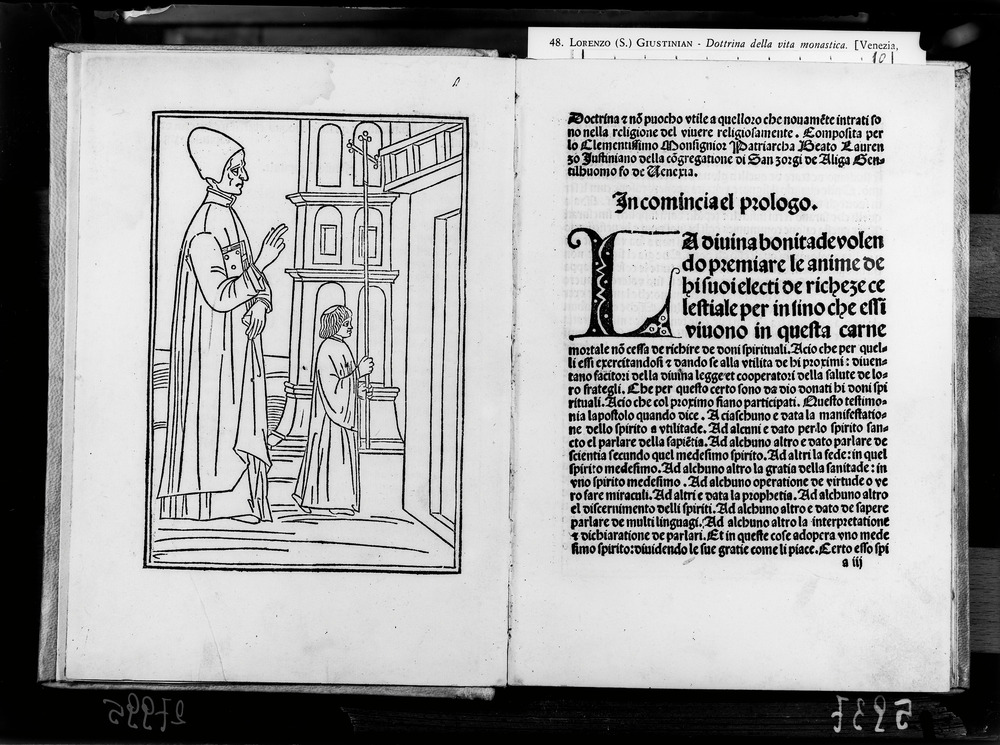 48. LORENZO (S.) GIUSTINIAN - Dottrina della vita monastica. [Venezia,
10
Doctrina ⁊ nõ puocho vtile a quelloro che nouamẽte intrati so
no nella religione del viuere religiosamente. Composita per
lo Clementissimo Monsignior Patriarcha Beato Lauren
zo Justiniano della cõgregatione di San zorgi de Aliga Gen-
tilhuomo fo de Uenexia.
In comincia el prologo.
LA diuina bonitade volen
do premiare le anime de
hi suoi electi de richeze ce
lestiale per in sino che essi
viuono in questa carne
mortale nõ cessa de richire de doni spirituali. Acio che per quel-
li essi exercitandosi ⁊ dando se alla vtilita de hi proximi: diuen-
tano facitori della diuina legge et cooperatori della salute de lo-
ro frategli. Che per questo certo sono da dio donati hi doni spi
rituali. Acio che col proximo siano participati. Questo testimo-
nia lapostolo quando dice. A ciaschuno e data la manifestatio-
ne dello spirito a vtilitade. Ad alcuni e dato perlo spirito san-
cto el parlare della sapiẽtia. Ad alchuno altro e dato parlare de
scientia secundo quel medesimo spirito. Ad altri la fede: in quel
spirito medesimo. Ad alchuno altro la gratia della sanitade: in
vno spirito medesimo. Ad alchuno operatione de virtude o ve
ro fare miraculi. Ad altri e data la prophetia. Ad alchuno altro
el discernimento delli spiriti. Ad alchuno altro e dato de sapere
parlare de multi linguagi. Ad alchuno altro la interpretatione
⁊ dichiaratione de parlari. Et in queste cose adopera vno mede
simo spirito: diuidendo le sue gratie come li piace. Certo esso spi
a iij
27995
5937